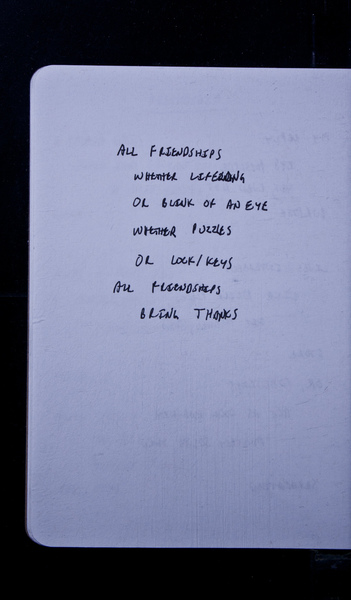 ALL FRIENDSHIPS
WHETHER LIFELONG
OR BLINK OF AN EYE
WHETHER PUZZLES
OR LOCK/KEYS
ALL FRIENDSHIPS
BRING THANKS